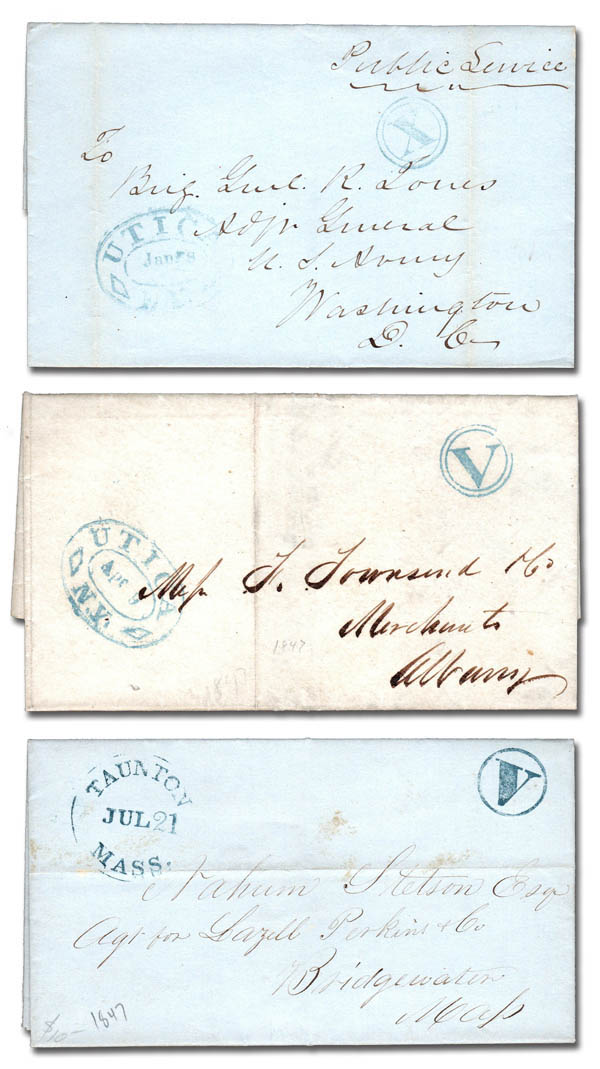 Public Service
V
To
Brig. Genl. R. Jones
Adjt General
U. S. Army
Washington
D. C.
UTICA
Jan 28
N.Y.
V
UTICA
APR 9
N.Y.
Mess. F. Townsend & Co
Merchants
Albany
1847
1847
TAUNTON
JUL 21
MASS.
V
Nahum Stetson Esq
Agt for Lazell Perkins & Co
Bridgewater
Mass
$10- 1847